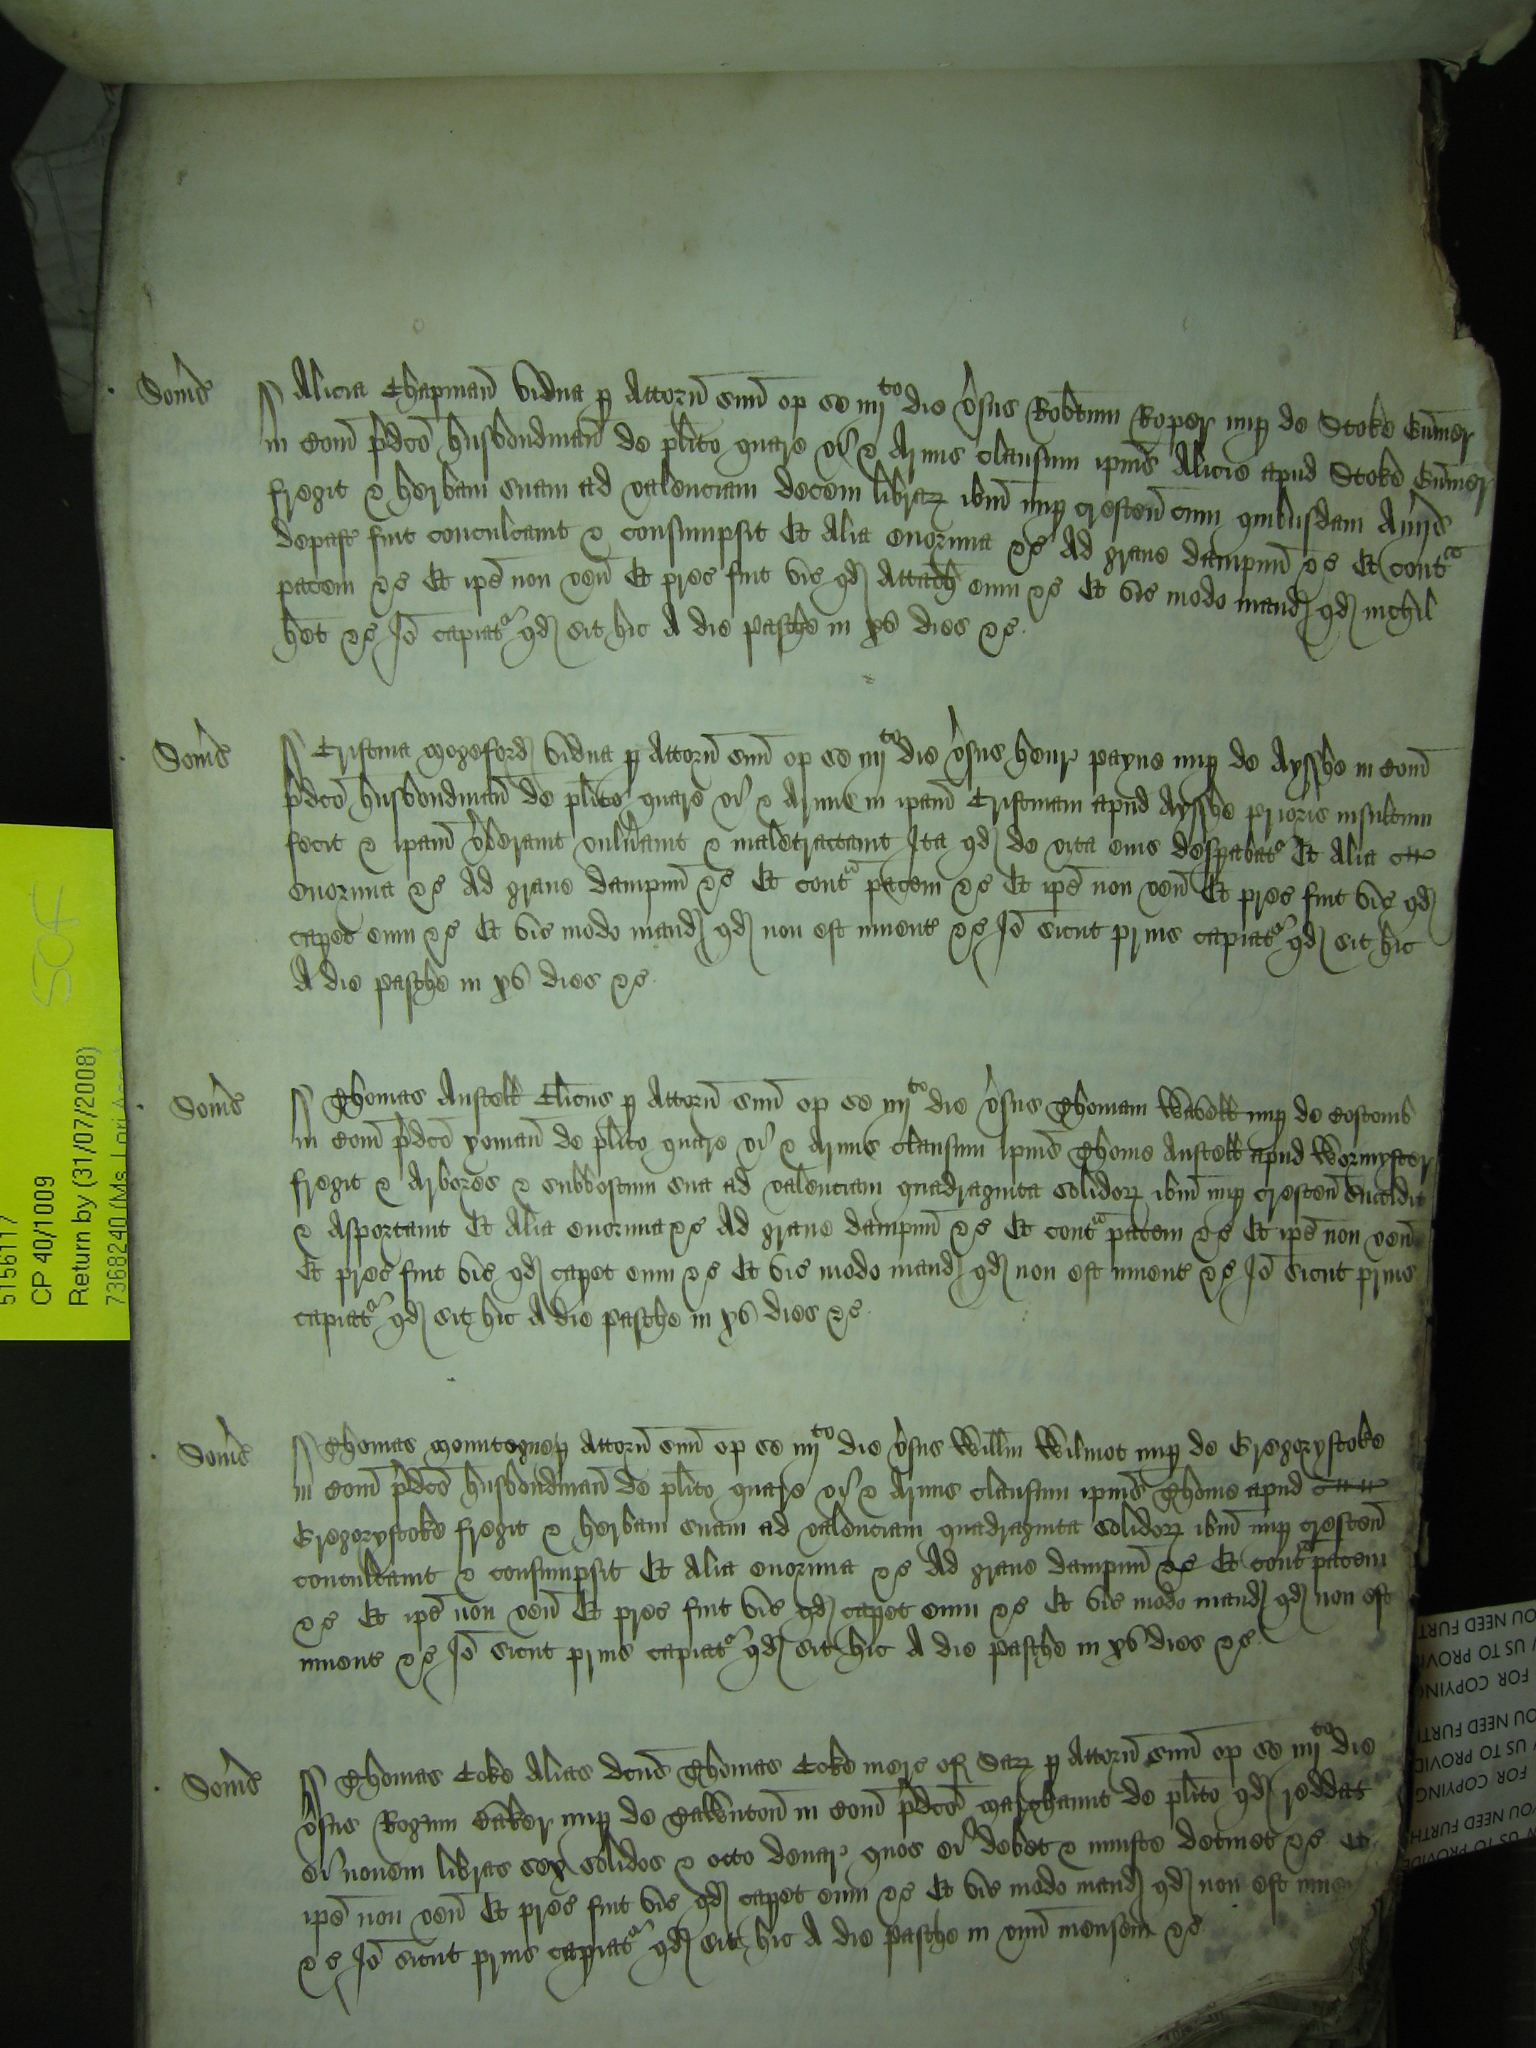 Som̃s Alicia Chapman̄ vidua p Attorñ suū op se iiijto die v̉sus Rob̄tum Roper nup de Stoke Gūmer
in Com̄ p̉dc̄o husbondman̄ de pl̄ito quare vi & Armis clausum ip̄ius Alicie apud Stoke Gūmer
fregit & herbam suam ad valenciam decem librar̨ ib̄m nup crescen̄ cum quibusdam Av̉iis
depast fuit conculcavit & consumpsit Et Alia enormia &c Ad grave dampnū &c Et contra
pacem &c Et ip̄e non ven̄ Et prec̄ fuit vic̄ qd̄ Attach eum &c Et vic̄ modo mand̄ qd̄ nichil
het &c Iō capiatr qd̄ sit hic A die Pasche in xv dies &c
Som̃s Cristina Mogeford̄ vidua p Attorn̄ suū op se iiijto die v̉sus Henr Payne nup de Aysshe in Com̄
p̉dc̄o husbondman̄ de pl̄ito quare vi & Armis in ip̄am Cristinam apud Aysshe Prioris insultum
fecit & ip̄am v̉beravit vuln̉avit & maletractavit Ita qd̄ de vita eius desp̱abatr Et Alia
enormia &c Ad grave dampnū &c Et contra pacem &c Et ip̄e non ven̄ Et prec̄ fuit vic̄ qd̄
capet eum &c Et vic̄ modo mand̄ qd̄ non est invent̄ &c Iō sicut prius capiatr qd̄ sit hic
A die Pasche in xv dies &c
Som̃s Thomas Austell Cl̄icus p Attorn̄ suū op se iiijto die v̉sus Thomam Wavell nup de Coscomb
in Com̄ p̉dc̄o yoman̄ de pl̄ito quare vi & Armis clausum ip̄ius Thome Austell apud Wormyster
fregit & Arbores & subboscum sua ad valenciam quadraginta solidor̨ ib̄m nup crescen̄ succidit
& Asportavit Et Alia enormia &c Ad grave dampnū &c Et contra pacem &c Et ip̄e non ven̄
Et prec̄ fuit vic̄ qd̄ capet eum &c Et vic̄ modo mand̄ qd̄ non est invent̄ &c Iō sicut prius
capiatr qd̄ sit hic A die Pasche in xv dies &c
Som̃s Thomas p Attorn̄ suū op se iiijto die v̉sus Will̄m Wilmot nup de Gregorystoke
in Com̄ p̉dc̄o husbondman̄ de pl̄ito quare vi & Armis clausum ip̄ius Thome apud
Gregorystoke fregit & herbam suam ad valenciam quadraginta solidor̨ ib̄m nup crescen̄
conculcavit & consumpsit Et Alia enormia &c Ad grave dampnū &c Et contra pacem
&c Et ip̄e non ven̄ Et prec̄ fuit vic̄ qd̄ capet eum &c Et vic̄ modo mand̄ qd̄ non est
invent̄ &c Iō sicut prius capiatr qd̄ sit hic A die Pasche in xv dies &c
Som̃s Thomas Coke Alias dc̄us Thomas Coke Sar̨ p Attorn̄ suū op se iiijto die
v̉sus Rog̉um nup de Tawnton̄ in Com̄ p̉dc̄o de pl̄ito qd̄ reddat
ei novem libras sex solidos & octo denar quos ei debet & iniuste detinet &c Et
ip̄e non ven̄ Et prec̄ fuit vic̄ qd̄ capet eum &c Et vic̄ modo mand̄ qd̄ non est
&c Iō sicut prius capiatr qd̄ sit hic A die Pasche in unū mensem &c
SOF
5156117
CP 40/1009
Return by (31/07/2008)
7368240 (Ms Lori
OU NEED FURT
US TO PROVI
FOR COPYING
OU NEED FURT
US TO PROVID
FOR COPYING
YOU NEED FURTH
US TO PROVIDE